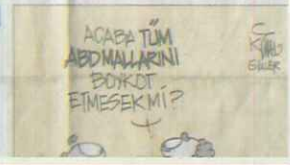 ACABA TÜM
ABD MALLARINI
BOYKOT
ETMESEK Mİ?